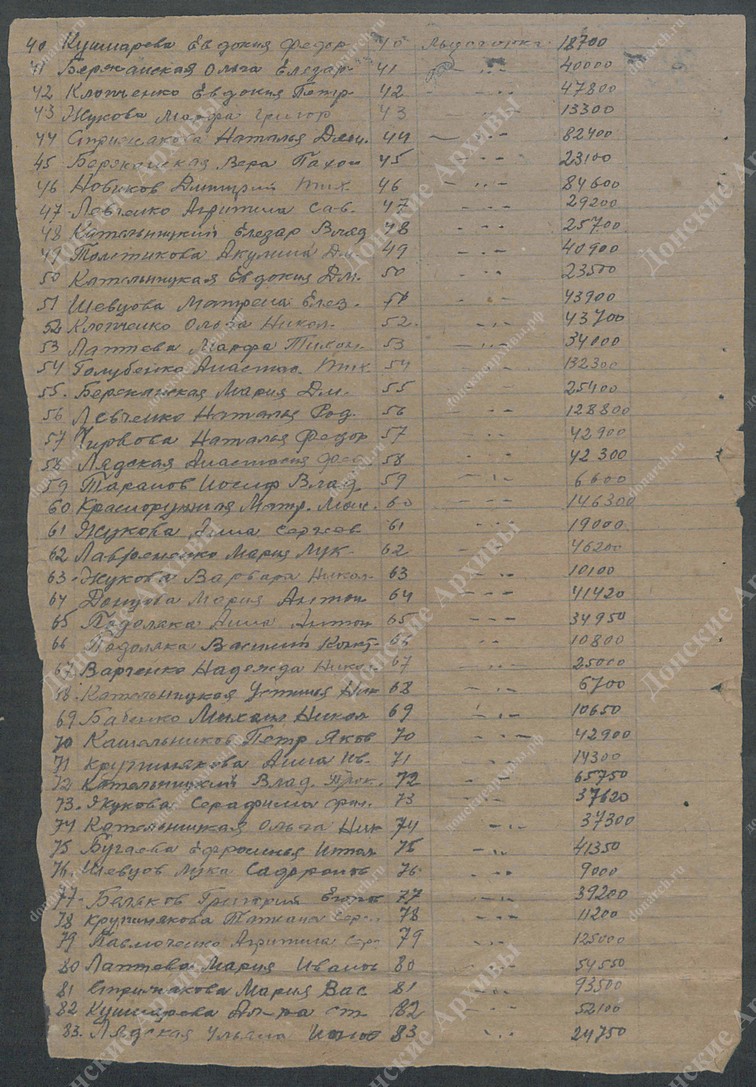 40 Кушнарева Евдокия Федор 40 Лысогорка 18700
41 Бережанская Ольга Елезар 41 40000
42 Клопченко Евдокия Петр 42 47800
43 Жукова Марфа Григор 43 13300
44 Стрижакова Наталья Дми. 44 82400
45 Вера Пахом 45 23100
46 Новиков Дмитрий Тих 46 84600
47 Левченко Агрипина Сав. 47 29200
48 Котельницкий Елезар 48 25700
49 Акулина Дм. 49 40900
50 Котельницкая Евдокия Дм. 50 23500
51 Шевцова Матрена Елез. 43900
52 Клопченко Ольга Никол. 52. 43700
53 Лаптева Марфа Тихон. 53 34000
54 Голубейко Анастас Тих 54 132300
55. Мария Дм. 55 25400
56 Левченко Наталья Род. 56 128800
57 Наталья Федор 57 42900
58 Лядская Анастасия Фед 58 42300
59 Таранов Иосиф Влад. 59 6600
60 Матр. 60 146300
61 Жукова Анна Сергеев 61 19000
62 Мария Лук. 62 46200
63. Жукова Варвара Никол. 63 10100
64 Донцова Мария Антон 64 41420
65 Подоляка Анна Антон 65 34950
66 Подоляка Василий 66 10800
67 Варченко Надежда Никол 67 25000
68. Котельницкая Устинья Ник 68 6700
69. Баченко Михаил Никол 69 10650
70 Кашельников Петр Яков 70 42900
71 Крупинякова Анна Ив. 71 14300
72 Котельницкий Влад. 72 65750
73. Жукова Серафима 73 37620
74 Котельницкая Ольга Ник 74 37300
75 Бугаева Ефросинья 75 41350
76. Шевцов Лука Сафронов 76. 9000
77. Беляков Григорий 77 39200
78 Крупинякова Татьяна 78 11200
79 Агрипина 79 125000
80 Лаптева Мария Иванов 80 54550
81 Стрижакова Мария Вас 81 93500
82 Кушнарева 82 52100
83. Лядская Ульяна 83 24750
Донские Архивы
donarch.ru